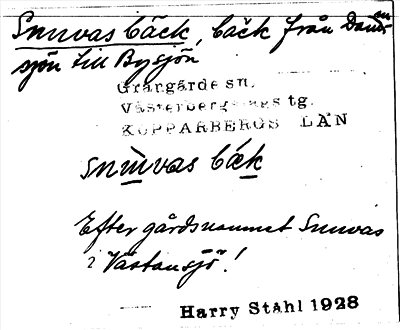 Snuvas bäck, bäck från Damm-
sjön till Bysjön
Grangärde sn.
Västerbergslags tg.
KOPPARBERGS LÄN
snùvas bæk
Efter gårdsnamnet Snuvas
i Västansjö!
Harry Ståhl 1928